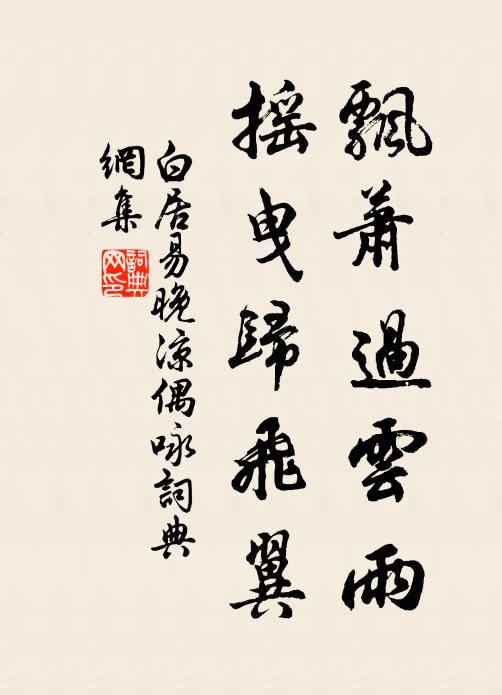 飄蕭過雲雨
搖曳歸飛翼
白居易晚涼偶咏詞典
網集
詞典
网印